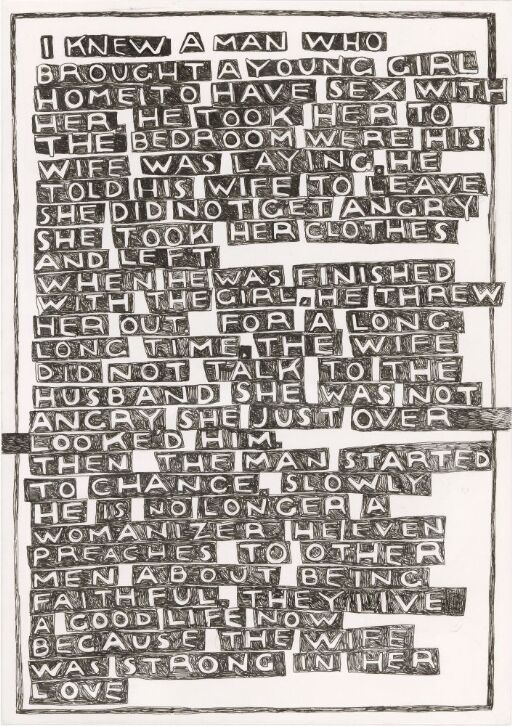 I KNEW A MAN WHO
BROUGHT A YOUNG GIRL
HOME TO HAVE SEX WITH
HER. HE TOOK HER TO
THE BEDROOM WERE HIS
WIFE WAS LAYING. HE
TOLD HIS WIFE TO LEAVE
SHE DID NOT GET ANGRY
SHE TOOK HER CLOTHES
AND LEFT.
WHEN HE WAS FINISHED
WITH THE GIRL, HE THREW
HER OUT FOR A LONG
LONG TIME. THE WIFE
DID NOT TALK TO THE
HUSBAND SHE WAS NOT
ANGRY SHE JUST OVER
LOOKED HIM.
THEN THE MAN STARTED
TO CHANCE. SLOWLY
HE IS NO LONGER A
WOMANIZER HE EVEN
PREACHES TO OTHER
MEN ABOUT BEING
FAITHFUL. THEY LIVE
A GOOD LIFE NOW
BECAUSE THE WIFE
WAS STRONG IN HER
LOVE